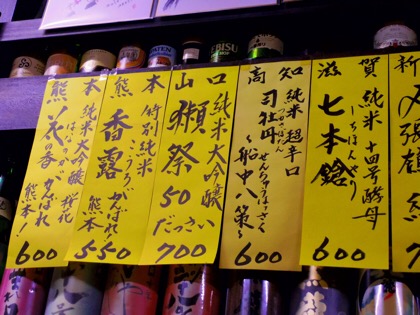 熊本
純米大吟醸 桜花
花の香
はなのか
がんばれ
熊本!
600
熊本
特別純米
香露
こうろ
がんばれ
熊本
550
山口
純米大吟醸
獺祭50
だっさい
700
高知
純米 超辛口
司牡丹
つかさぼたん
せんちゅうはっさく
〜船中八策〜
600
滋賀
純米 十四号酵母
しちほんやり
七本鎗
600
新
〆張鶴
7
YEBISU